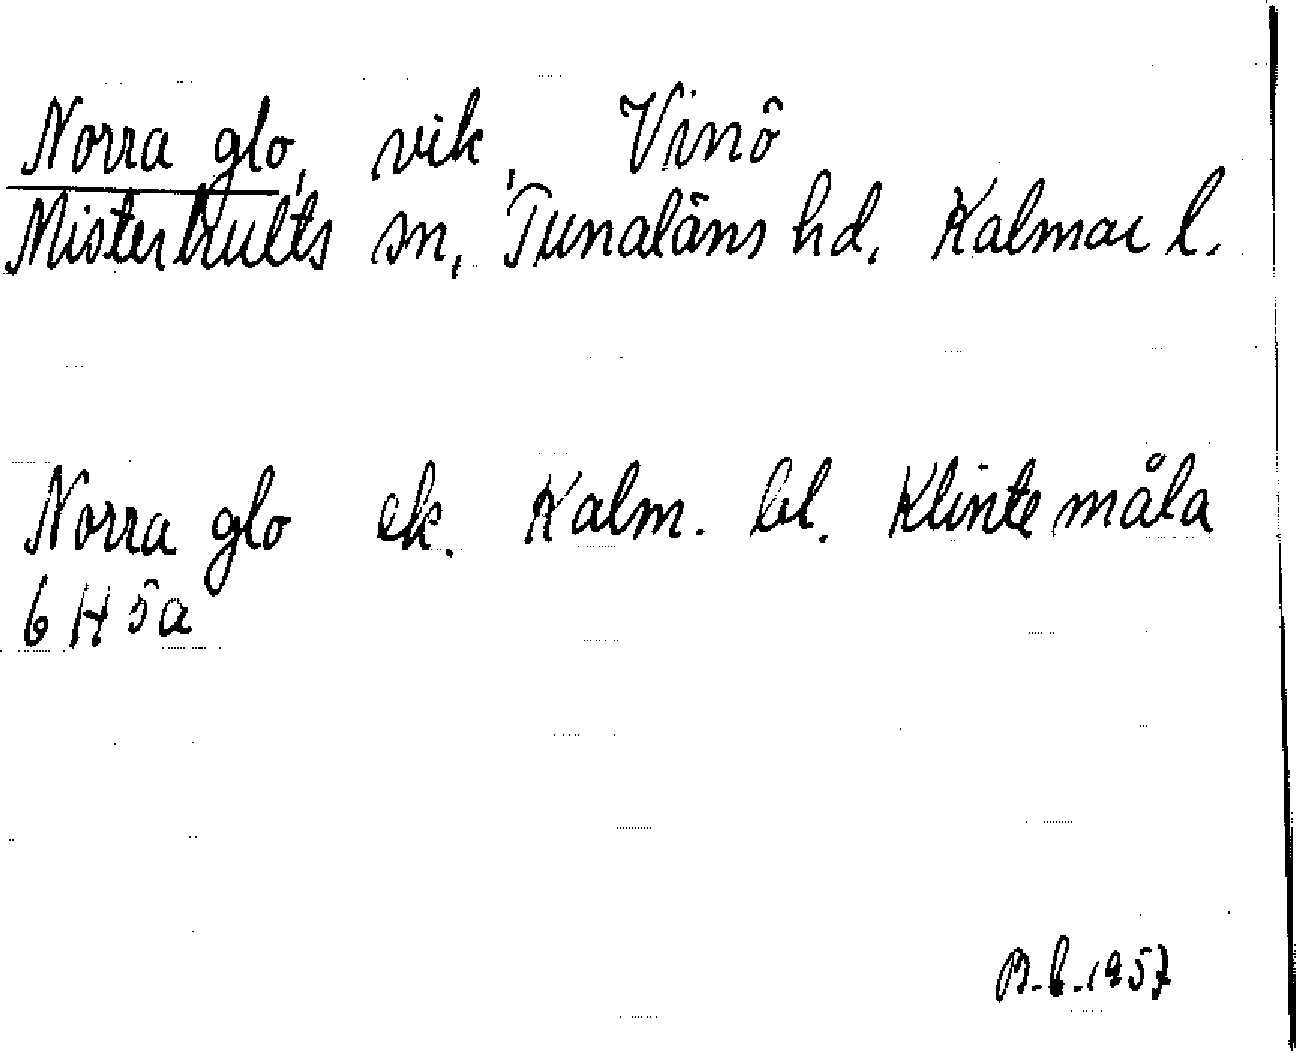 Norra glo, vik, Vinö
Misterhults sn, Tunaläns hd, Kalmar l.
Norra glo ek. Kalm. bl. Klintemåla
6 H 5a
B.L. 1957